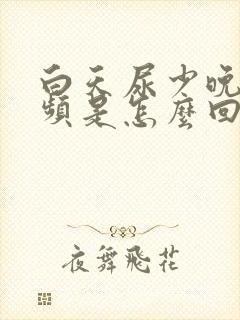 白天尿少晚
頻是怎麼回
夜舞飛花